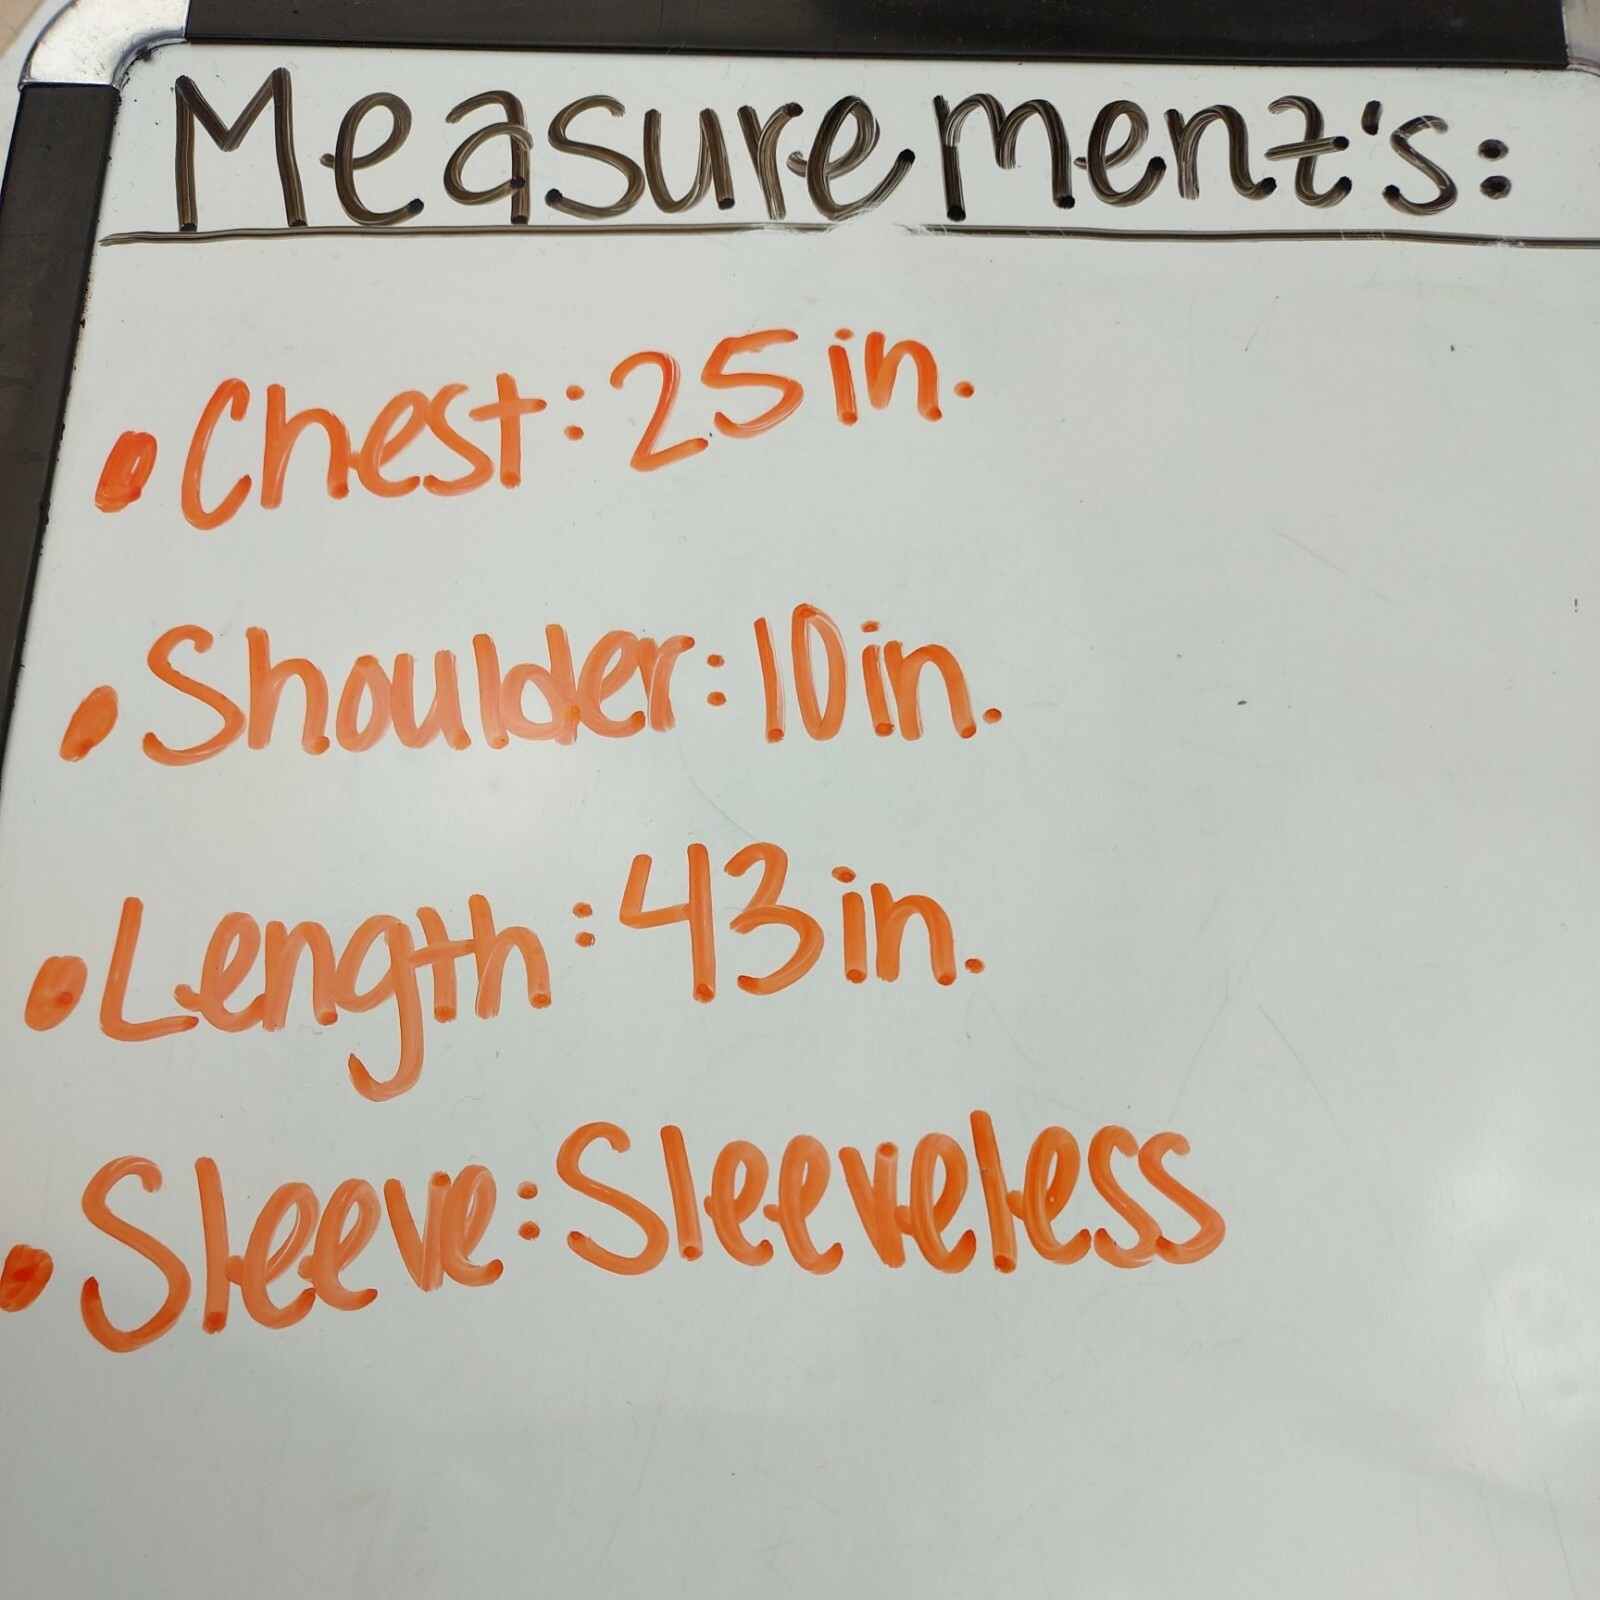 Measurement's:
• Chest: 25 in.
• Shoulder: 10 in.
• Length: 43 in.
• Sleeve: Sleeveless